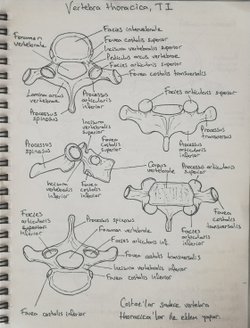 Vertebra thoracica, T1
Facies intervertebralis
Fovea costalis superior
Incisura vertebralis superior
Pediculus arcus vertebrae
Facies articularis superior
Fovea costalis transversalis
Foramen
vertebrale
Lamina arcus
vertebrae
Processus
articularis
inferior
Processus
spinosus
Facies articularis superior
Processus
transversus
Processus articularis
inferior
Incisura
vertebralis
superior
Fovea
costalis
superior
Processus
spinosus
Incisura
vertebralis
inferior
Fovea
costalis
inferior
Corpus
vertebrale
Processus articularis
superior
Fovea
costalis
transversalis
Facies
articularis
inferior
Processus spinosus
Foramen vertebrale
Facies articularis inf.
Fovea costalis transversalis
Incisura vertebralis inferior
Fovea costalis
inferior
Facies
articularis
superior
inferior
Fovea costalis inferior
Costae'lar sadece vertebra
thoracica'lar ile eklem yapar.